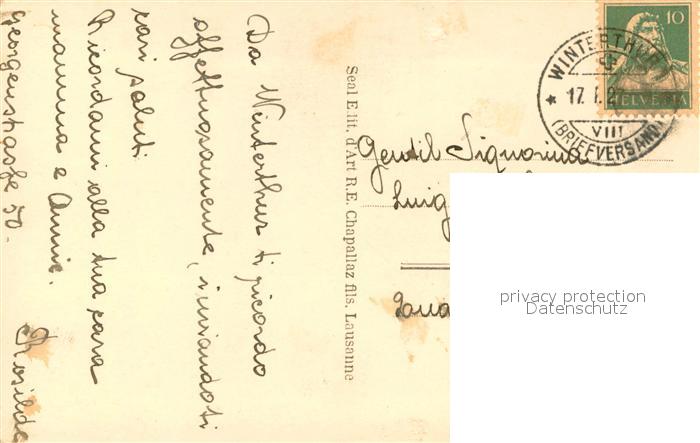 Da Winterthur ti ricordo
affettuosamente, inviandoti
cari saluti
Ricordami alla tua cara
mamma e Annie.
Georgenstrasse 50.
Rosilde
Seal Edit, d'Art R.E. Chapallaz fils. Lausanne
Gentil Signorina
Luig
10
HELVETIA
WINTERTHUR
17. I. 27
VIII
(BRIEFVERSAND)
privacy protection
Datenschutz